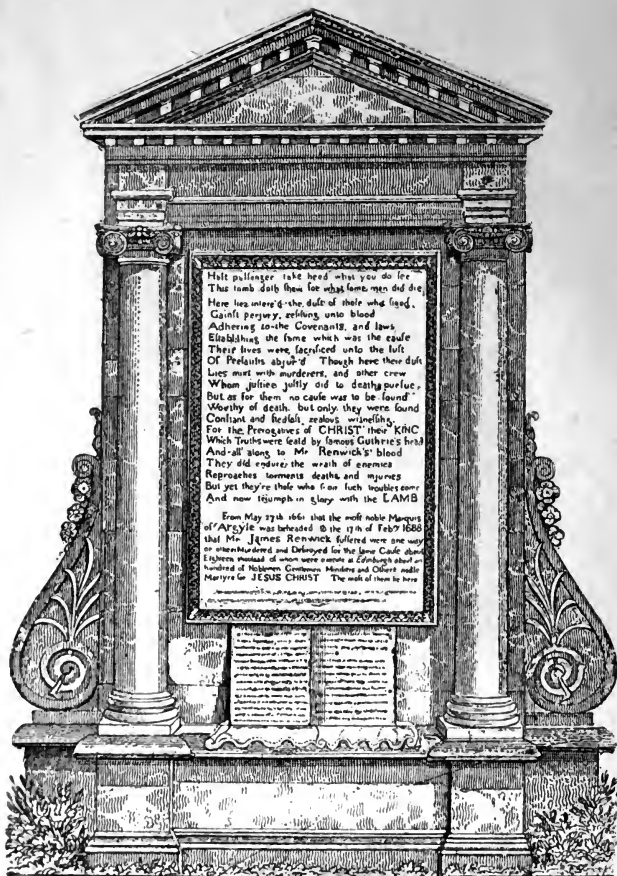 Halt passenger take heed what you do see
This tomb doth shew for what some men did die
Here lies interr'd the dust of those who stood,
Gainst perjury, resisting unto blood
Adhering to the Covenants, and laws,
Establishing the same which was the cause
Their lives were sacrificed unto the lust
Of Prelatists abjur'd Though here their dust
Lies mixt with murderers, and other crew
Whom justice justly did to death pursue,
But as for them no cause was to be found
Worthy of death, but only they were found
Constant and stedfast, zealous witnessing,
For the Prerogatives of CHRIST their KING
Which Truths were seal'd by famous Guthrie's head
And all along to Mr Renwick's blood
They did endure the wrath of enemies
Reproaches torments deaths and injuries
But yet they're those who from such troubles come
And now triumph in glory with the LAMB
From May 27th 1661 that the most noble Marquis
of Argyle was beheaded to the 17th of Febry 1688
that Mr James Renwick suffered were one way
or other Murdered and Destroyed for the same Cause about
Eighteen thousand of whom were execute at Edinburgh about an
hundred of Noblemen Gentlemen Ministers and Others noble
Martyrs for JESUS CHRIST The most of them lie here